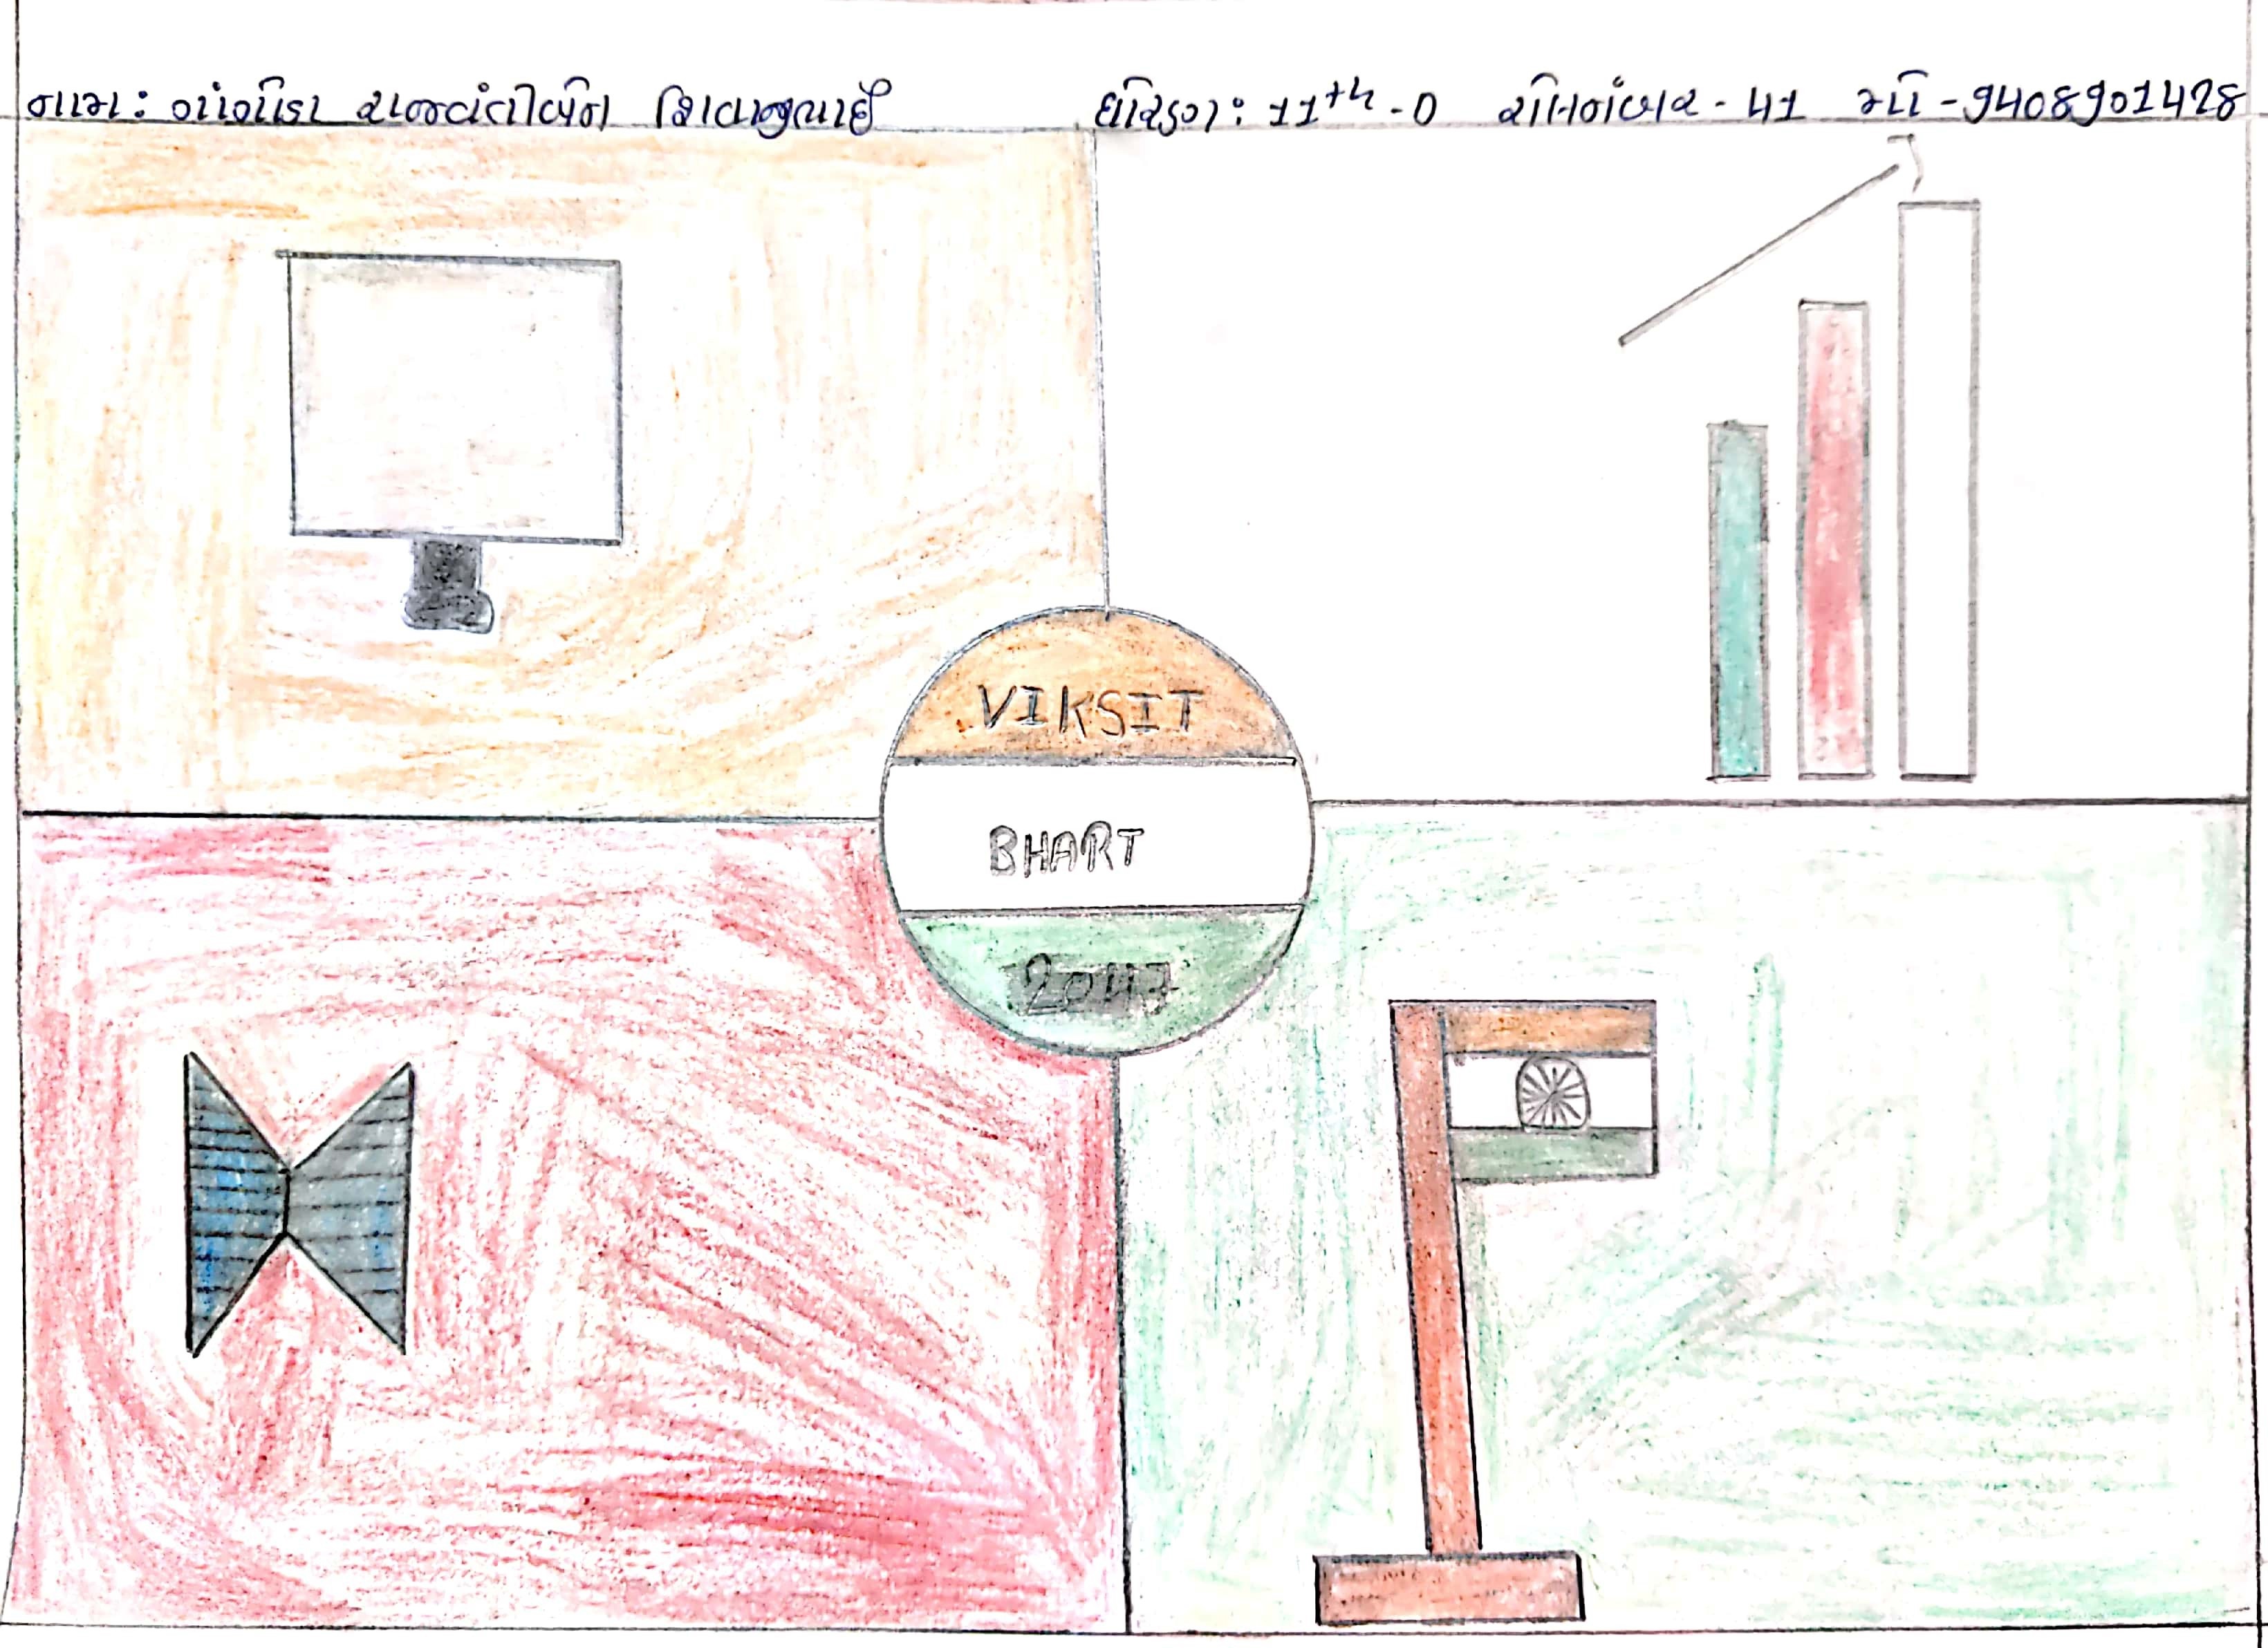 નામ: ગાંગડિયા રાજવંતીબેન શિવાભાઈ ધોરણ: 11th-D રોલનંબર - 41 મો - 9408901428
VIKSIT
BHART
2047